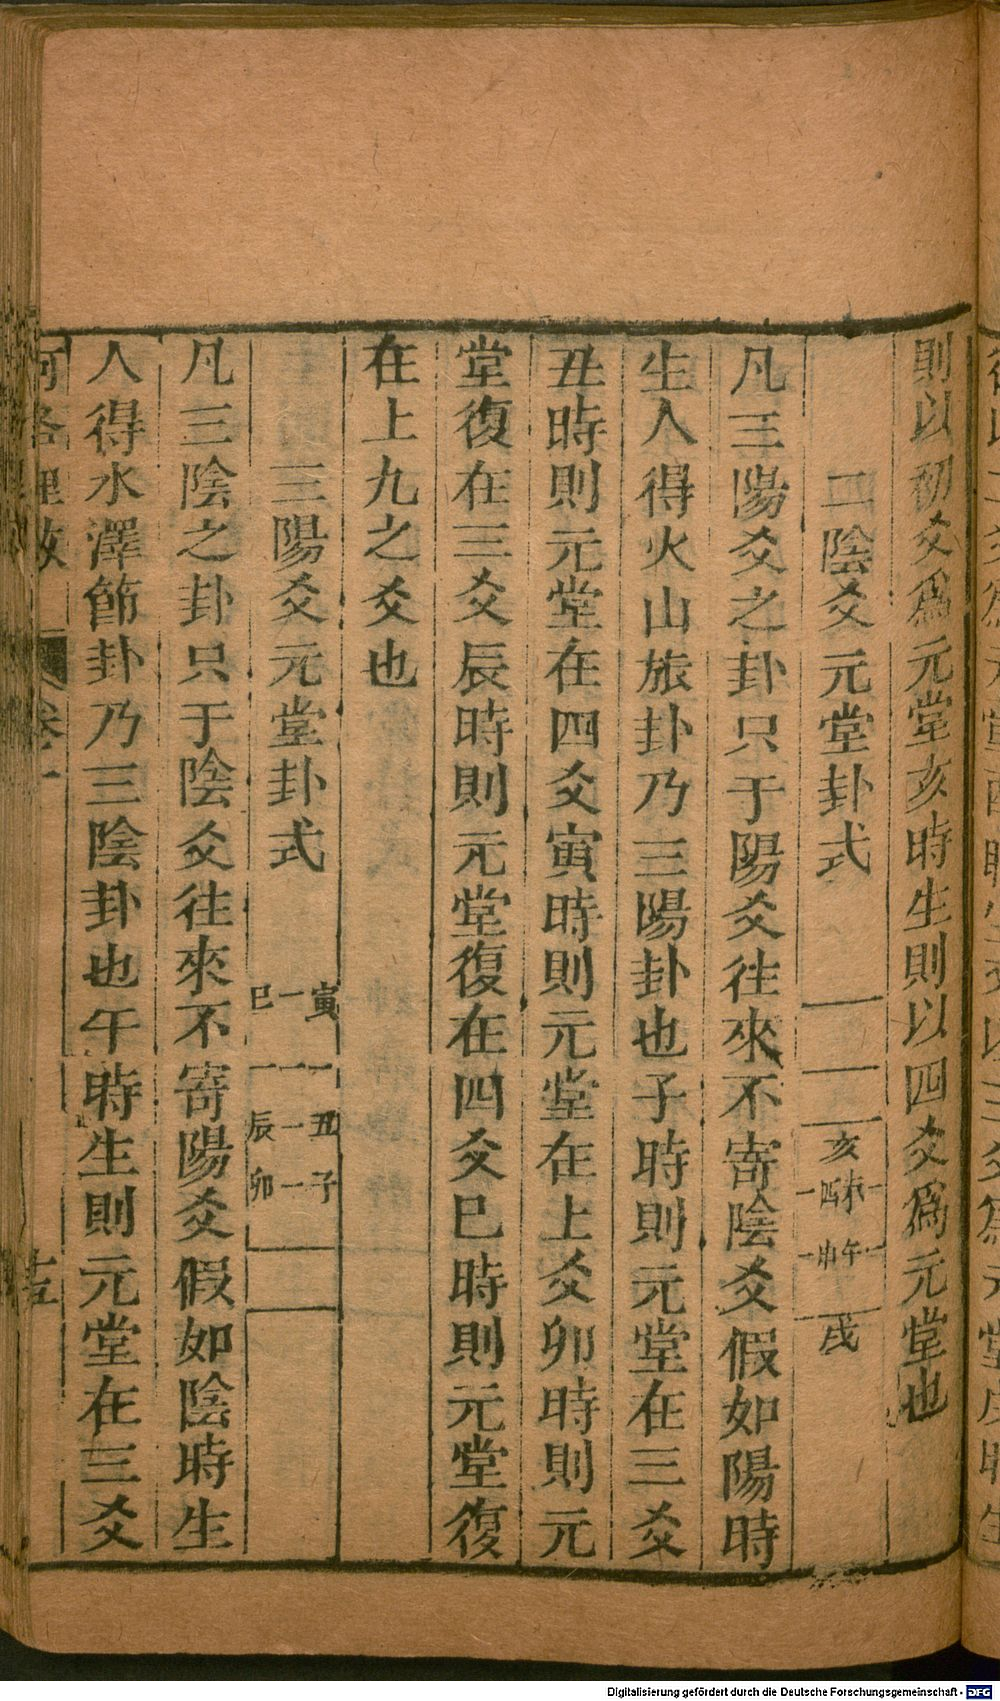 則以初爻爲元堂亥時生則以四爻爲元堂也
二陰爻元堂卦式
亥
未 酉
午 申
戌
凡三陽爻之卦只于陽爻往來不寄陰爻假如陽時
生人得火山旅卦乃三陽卦也子時則元堂在三爻
丑時則元堂在四爻寅時則元堂在上爻卯時則元
堂復在三爻辰時則元堂復在四爻巳時則元堂復
在上九之爻也
三陽爻元堂卦式
寅 巳
丑 辰
子 卯
凡三陰之卦只于陰爻往來不寄陽爻假如陰時生
人得水澤節卦乃三陰卦也午時生則元堂在三爻
河洛理数 卷十
Digitalisierung gefördert durch die Deutsche Forschungsgemeinschaft - DFG